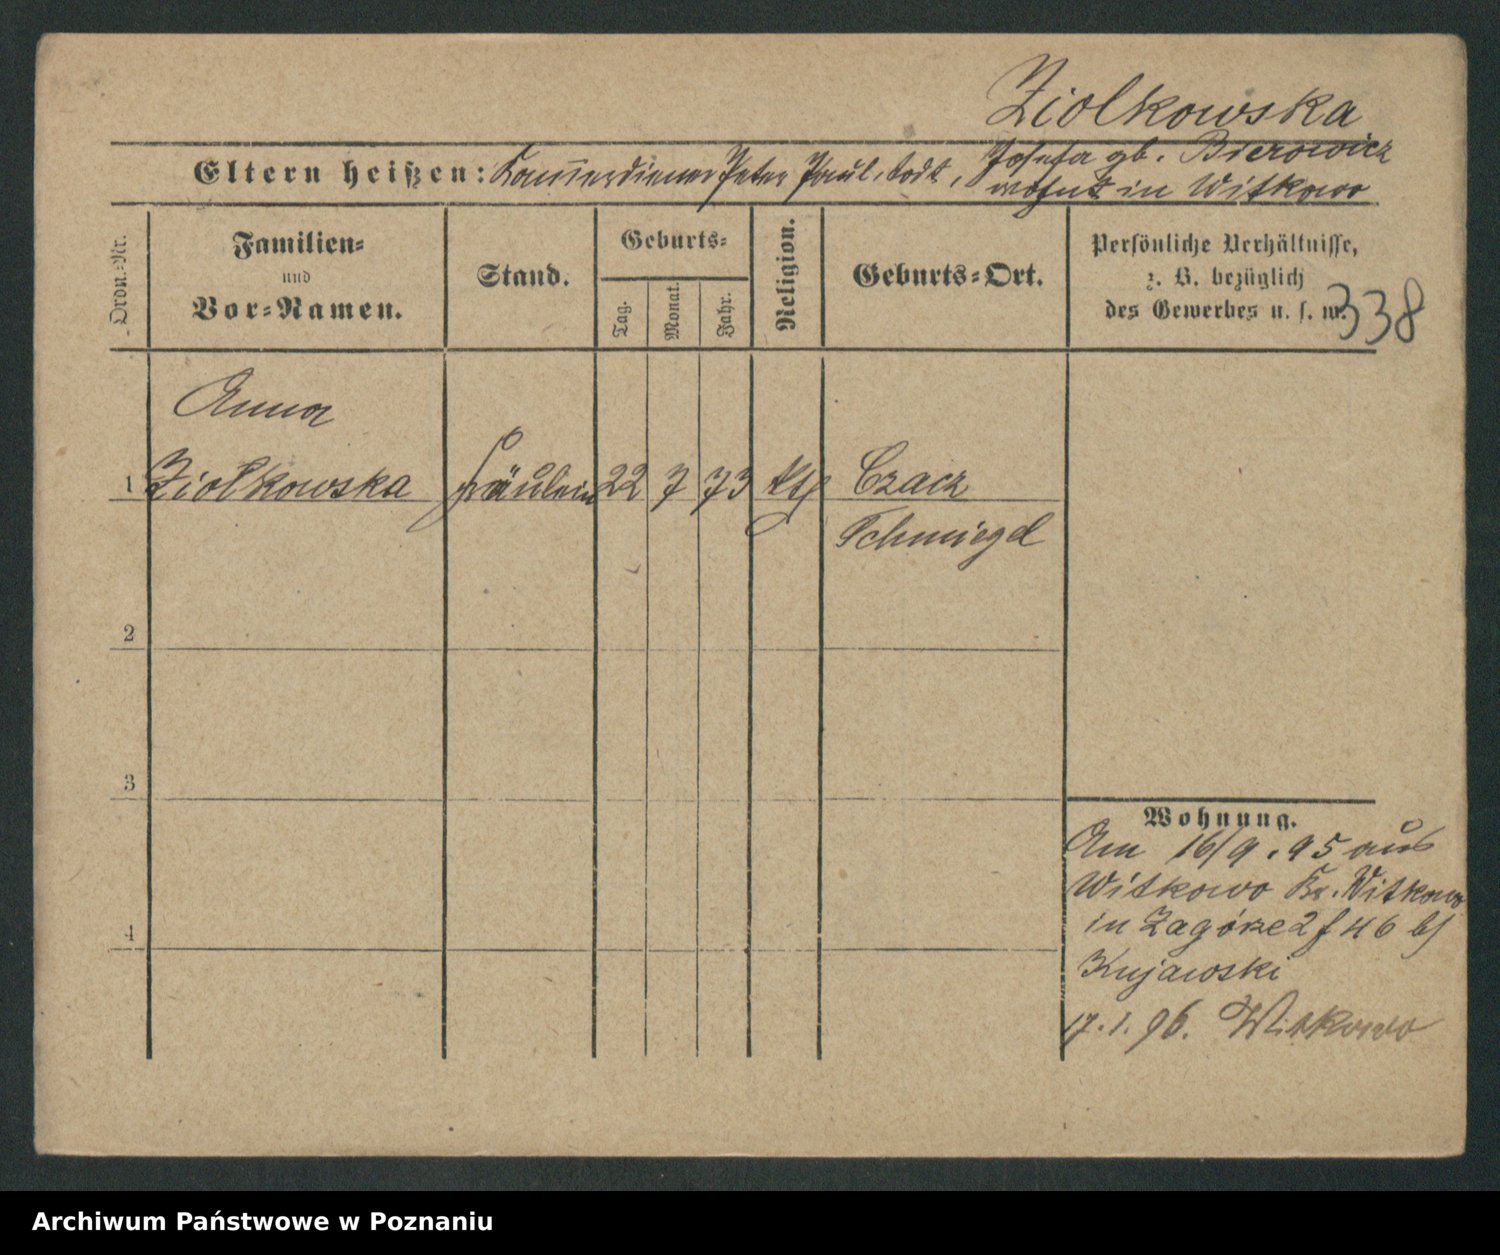 Ziolkowska
Eltern heißen: Kammerdiener Peter Paul, todt, Josefa gb. Bierowicz
wohnt in Witkowo
Ordn.-Nr.
Familien-
und
Vor-Namen.
Stand.
Geburts-
Tag.
Monat.
Jahr.
Religion.
Geburts-Ort.
Persönliche Verhältnisse,
z. B. bezüglich
des Gewerbes u. s. w.
338
Anna
1 Ziolkowska Fräulein 22 7 73 kth Czacz
Schmiegel
2
3
4
Wohnung.
Am 16/9.95 aus
Witkowo Kr. Witkowo
in Zagórze 2 f 46 b/
Kujawski
17.1.96. Witkowo
Archiwum Państwowe w Poznaniu